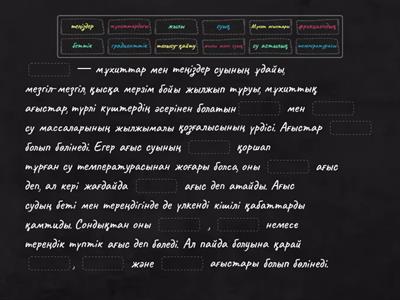 теңіздер мұхиттардағы жылы суық Мұхит ағыстары фрикциондық
беттік градиенттік толысу-қайту жылы мен суық су астылық температурасы
— мұхиттар мен теңіздер суының ұдайы,
мезгіл-мезгіл, қысқа мерзім бойы жылжып тұруы, мұхиттық
ағыстар, түрлі күштердің әсерінен болатын мен
су массаларының жылжымалы қозғалысының үрдісі. Ағыстар
болып бөлінеді. Егер ағыс суының қоршап
тұрған су температурасынан жоғары болса, оны ағыс
деп, ал кері жағдайда ағыс деп атайды. Ағыс
судың беті мен тереңдігінде де үлкенді кішілі қабаттарды
қамтиды. Сондықтан оны , немесе
тереңдік түптік ағыс деп бөледі. Ал пайда болуына қарай
, және ағыстары болып бөлінеді.